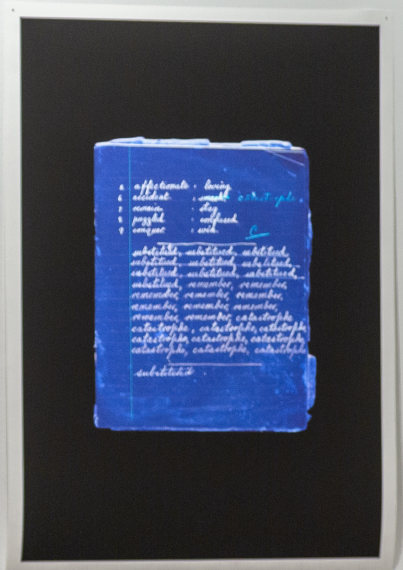 5 affectionate : loving
6 accident : catastrophe.
7 remain : stay
8 puzzled : confused
9 conquer : win
substituted, substituted, substituted,
substituted, substituted, substituted,
substituted, substituted, substituted,
substituted, remember, remember,
remember, remember, remember,
remember, remember, remember,
remember, remember, catastrophe
catastrophe, catastrophe, catastrophe
catastrophe, catastrophe, catastrophe,
catastrophe, catastrophe, catastrophe
substituted